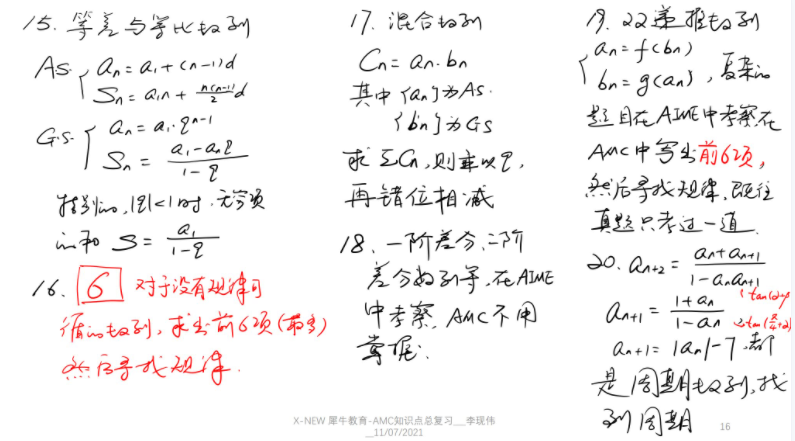 15. 等差与等比数列
As. { an = a1 + (n-1)d
Sn = a1n + n(n-1)/2 d
G.S. { an = a1·q^(n-1)
Sn = (a1 - anq)/(1-q)
特别的, |q|<1时, 无穷项
的和 S = a1/(1-q)
16. 6 对于没有规律可
循的数列, 求出前6项(最多)
然后寻找规律.
17. 混合数列
Cn = an·bn
其中 {an}为As.
{bn}为Gs
求ΣCn, 则乘以q,
再错位相减
18. 一阶差分、二阶
差分数列等, 在AIME
中考察, AMC不用
掌握.
19. 22递推数列
{ an = f(bn)
bn = g(an) , 复杂的
题目在AIME中考察, 在
AMC中写出前6项,
然后寻找规律, 既往
真题只考过一道.
20. an+2 = (an+an+1)/(1-anan+1)
an+1 = (1+an)/(1-an)
an+1 = |an|-7, 都
是周期数列, 找
到周期
X-NEW 犀牛教育-AMC知识点总复习__李现伟
__11/07/2021
16